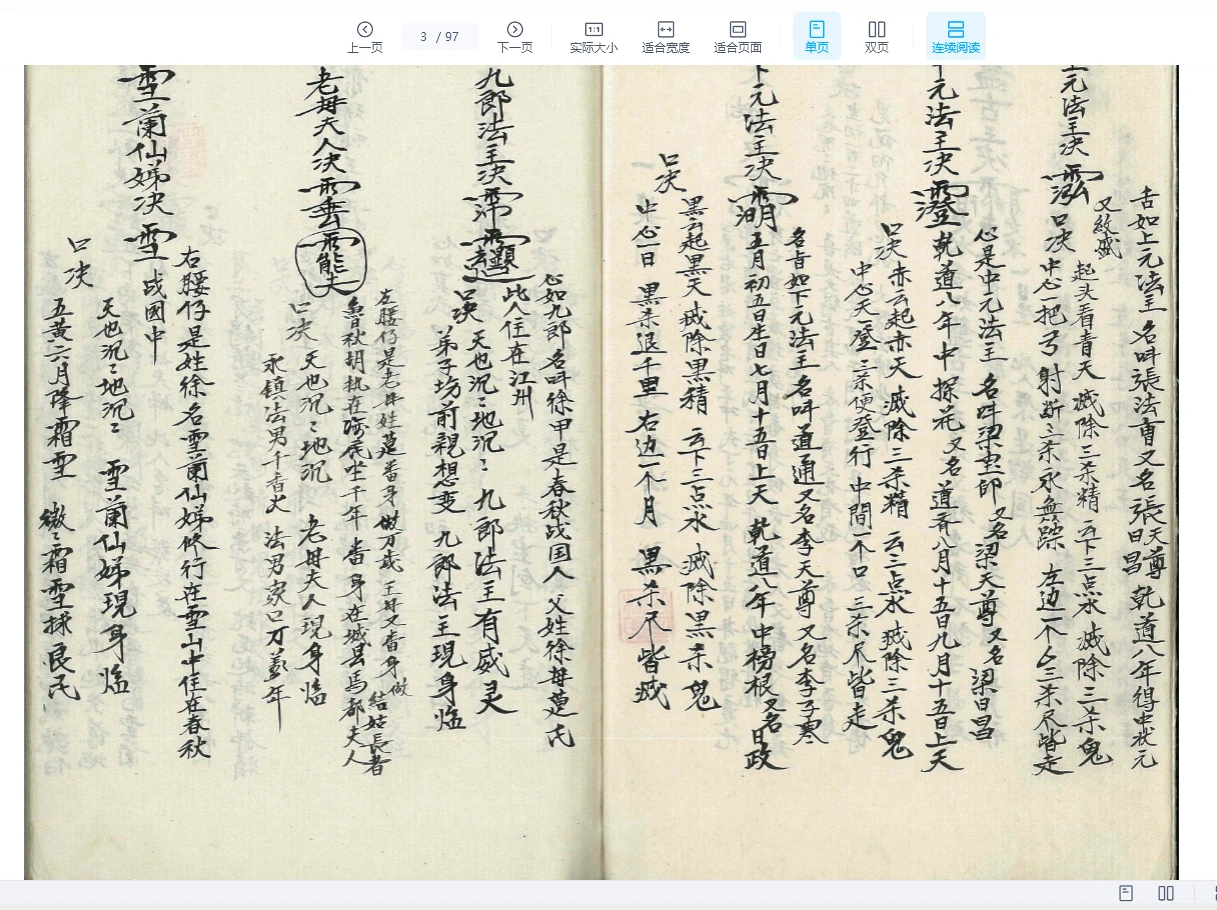 上一页
3 / 97
下一页
实际大小
适合宽度
适合页面
单页
双页
连续阅读
舌如上元法王 名叫張法曹又名張天尊 乾道八年得中状元
日昌
元法主决
口决
又敍盛
起头看青天 滅除三杀精 云下三点水 滅除三杀鬼
中心一把弓射断三杀永無踪 左边一个么三杀尽皆走
心是中元法王 名叫梁 印 又名梁天尊 又名梁日昌
元法主决 乾道八年中探花 又名道 八月十五日九月十五日上天
口决 赤云起赤天 滅除三杀精 云三点水 滅除三杀鬼
中心天一登 三杀便登行 中間一个口 三杀尽皆走
名音如下元法王名叫道通又名李天尊又名李子寒
下元法主决 五月初五日生日七月十五日上天 乾道八年中榜根又名日政
口决 黑云起黑天 滅除黑精 云下三点水 滅除黑杀鬼
中心一日 黑杀退千里 右边一个月 黑杀尽皆滅
心如九郎名叫徐甲是春秋战国人 父姓徐母 氏
此人住在江州
九郎法主决
口决 天也沉〻地沉〻 九郎法王有威灵
弟子坊前親想变 九郎法王現身临
左腰仔是老母姓 番身做万歲 王母又番身做
結姑長者
魯秋胡执在 底坐千年 番身在城县馬都夫人
老母夫人决
口决 天也沉〻地沉 老母夫人現身临
永镇法男千百火 法男家口万 年
右腰仔是姓徐名雪蘭仙娣修行在雪山中住在春秋
战國中
雪蘭仙娣决 雪
口决 天也沉〻地沉〻 雪蘭仙娣現身临
五黄六月降霜雪 〻霜雪 良民